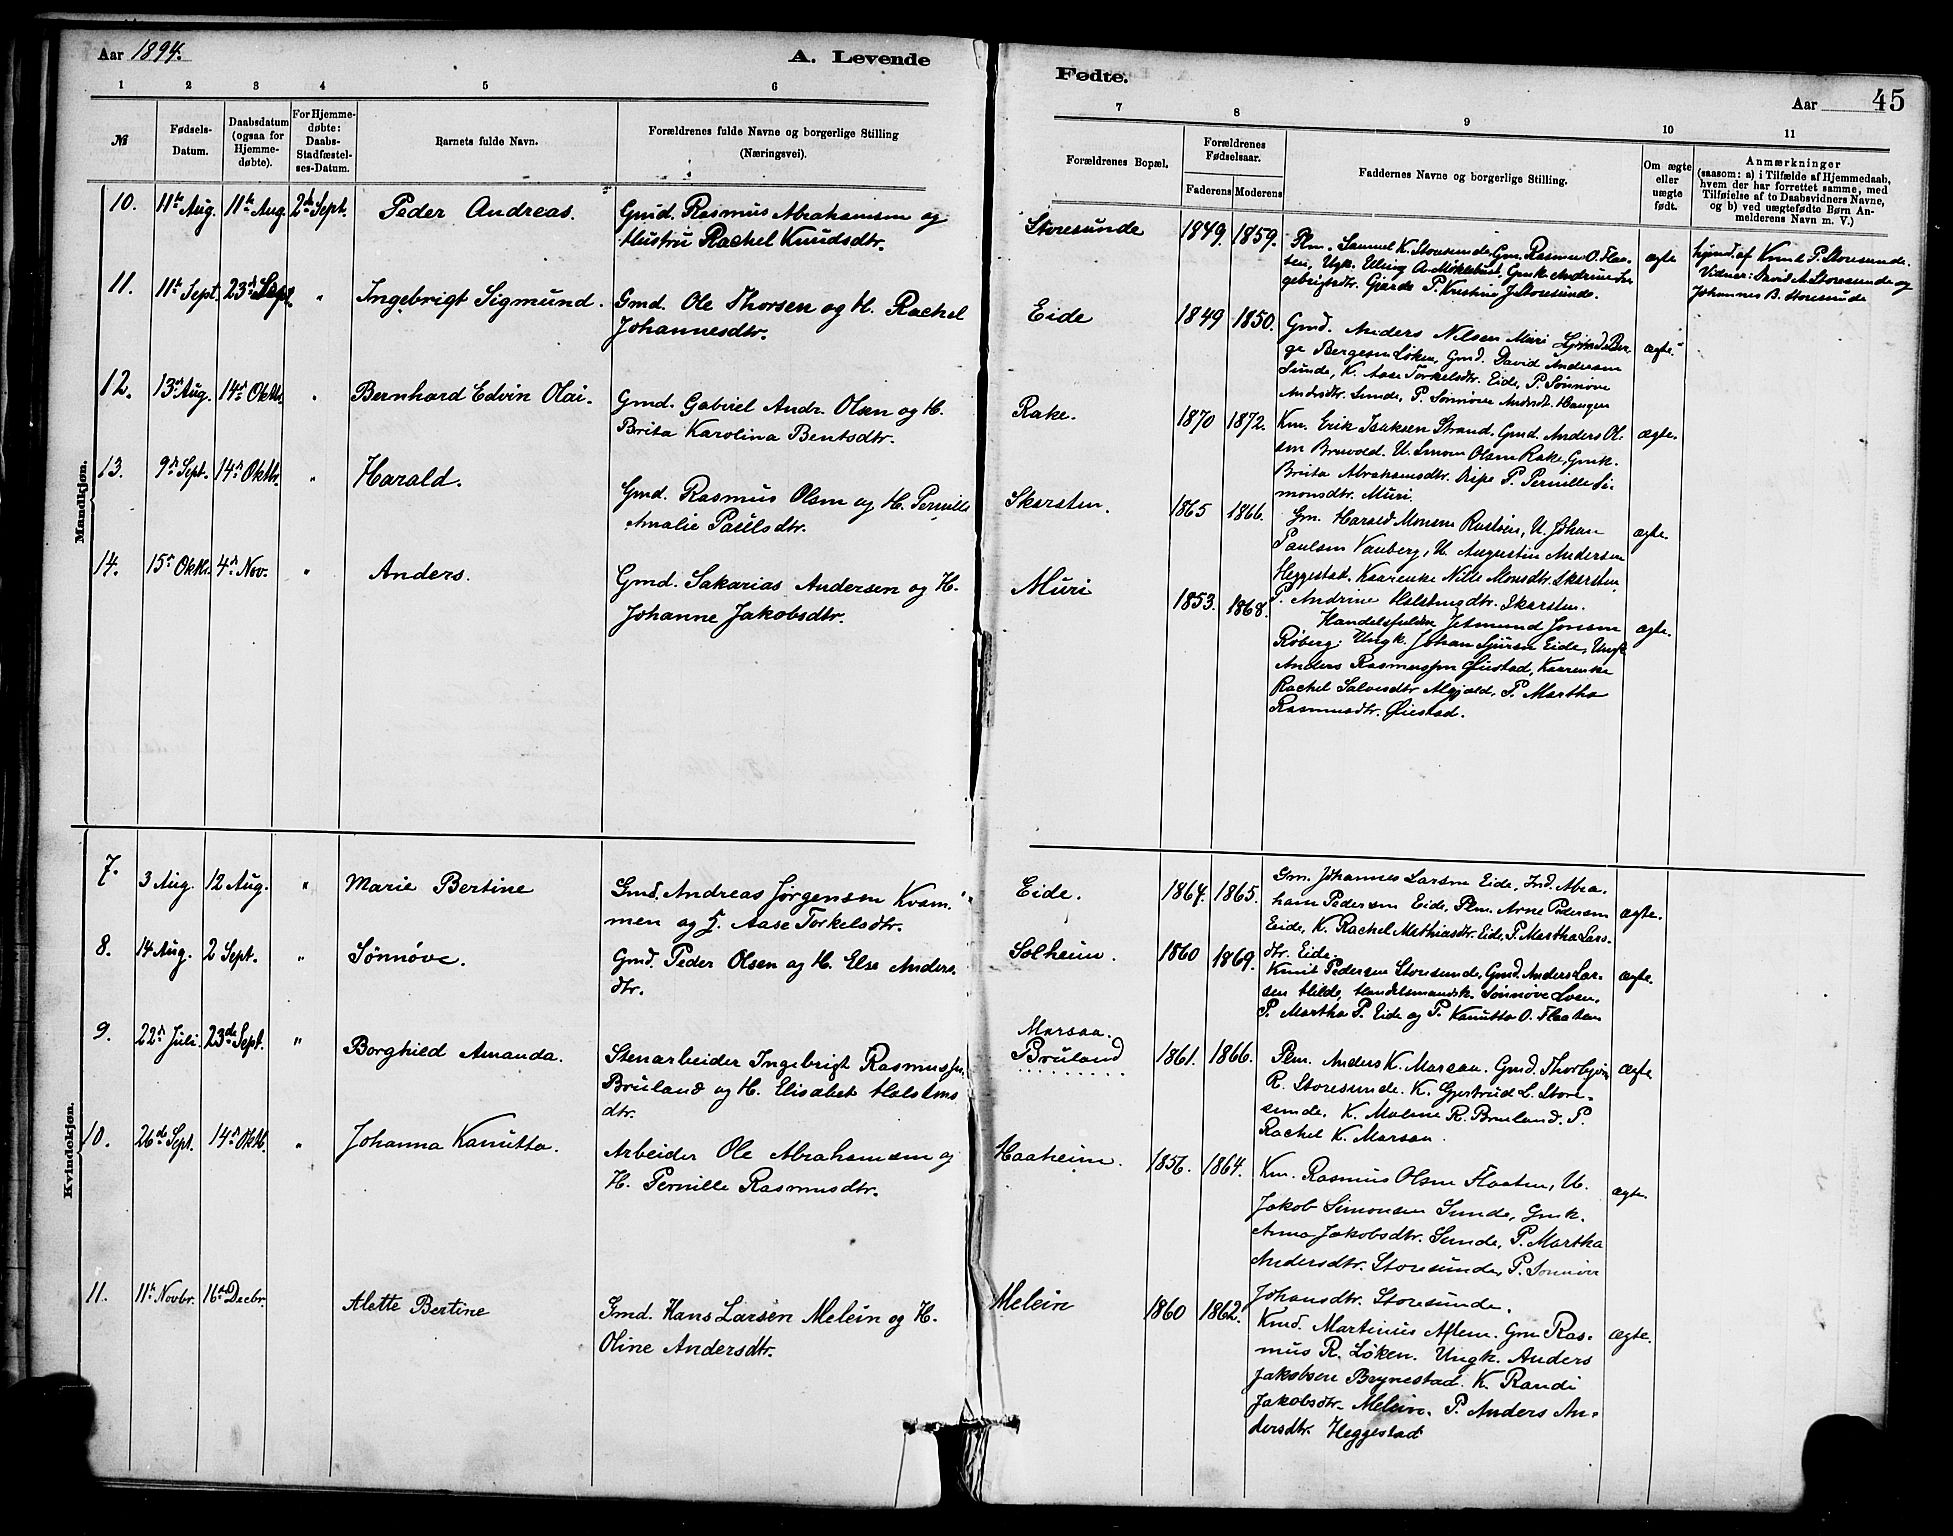 Aar 1894.
A. Levende
Fødte.
Aar
45
1 2 3 4 5 6
7 8 9 10 11
№
Fødsels-
Datum.
Daabsdatum
(ogsaa for
Hjemme-
døbte).
For Hjemme-
døbte:
Daabs-
Stadfæstel-
ses-Datum.
Barnets fulde Navn.
Forældrenes fulde Navne og borgerlige Stilling
(Næringsvei).
Forældrenes Bopæl.
Forældrenes
Fødselsaar.
Faderens Moderens
Faddernes Navne og borgerlige Stilling.
Om ægte
eller
uægte
født.
Anmærkninger
(saasom: a) i Tilfælde af Hjemmedaab,
hvem der har forrettet samme, med
Tilføielse af to Daabsvidners Navne,
og b) ved uægtefødte Børn An-
melderens Navn m. V.)
Mandkjøn.
10. 11te Aug. 11te Aug 2den Sept. Peder Andreas. Gmd. Rasmus Abrahamsen og
Hustru Rachel Knudsdtr.
Storesunde 1849. 1859.
Plm. Samuel K. Storesunde, Gm. Rasmus O. Flaa-
ten, Ugk. Elling A. Myklebust, Gmk. Andrine In-
gebrigtsdtr. Gjærde P. Kristine J. Storesunde.
ægte
hjmd. af Knut P. Storesunde.
Vidner: David A. Storesunde og
Johannes B. Storesunde
11. 11te Sept. 23de Sept " Ingebrigt Sigmund. Gmd. Ole Thorsen og H. Rachel
Johannesdtr.
Eide 1849 1850.
Gmd. Anders Nilsen Muri Gmd. Ber-
ge Bergesen Løken, Gmd. David Andersen
Sunde, K. Aase Torkelsdtr. Eide, P. Sønnøve
Andrsdtr. Sunde, P. Sønnøve Andrsdt. Haugen
ægte.
12. 13de Aug. 14de Oktbr. " Bernhard Edvin Olai. Gmd. Gabriel Andr. Olsen og H.
Brita Karolina Bentsdtr.
Rake. 1870 1872.
Km. Erik Isaksen Strand. Gmd. Anders Ol-
sen Bruvold. U. Simon Olsen Rake, Gmk.
Brita Abrahamsdtr. Ripe P. Pernille Si-
monsdtr. Muri.
ægte.
13. 9de Sept. 14de Oktbr. " Harald. Gmd. Rasmus Olsen og H. Pernille
Amalie Paulsdtr.
Skarsten. 1865 1866.
Gm. Harald Monsen Rustøen, U. Johan
Paulsen Vauberg, U. Augustin Andersen
Heggestad. Kaarenke Nille Monsdtr. Skarsten,
P. Andrine Holstengdtr. Skarsten.
ægte.
14. 15de Oktbr. 4de Nov. " Anders. Gmd. Sakarias Andersen og H.
Johanne Jakobsdtr.
Muri 1853. 1868.
Handelsfuldm. Jetmund Jonsen
Røberg. Ungk. Johan Sjursen Eide, Ungk.
Anders Rasmussen Øiestad, Kaarenke
Rachel Salvesdtr Algjæld, P. Martha
Rasmusdtr. Øiestad.
ægte.
Kvindekjøn.
7. 3 Aug. 12 Aug. " Marie Bertine Gmd. Andreas Jørgensen Kvam-
men og H. Aase Torkelsdtr.
Eide. 1864. 1865.
Gm. Johannes Larsen Eide, Ind. Abra-
ham Pedersen Eide, Plm. Arne Pedersen
Eide, K. Rachel Mathiasdtr. Eide, P. Martha Lars-
dtr. Eide.
ægte.
8. 14 Aug. 2 Sept. " Sønnøve. Gmd. Peder Olsen og H. Else Anders-
dtr.
Solheim. 1860 1869.
Knut Pedersen Storesunde, Gmd. Anders Lar-
sen Hilde, Handelsmandsk. Sønnøve Loen,
P. Martha P. Eide og P. Kanutta O. Flaaten
ægte.
9. 22de Juli. 23de Sept. " Borghild Amanda. Stenarbeider Ingebrigt Rasmussen
Bruland og H. Elisabet Halstens-
dtr.
Marsaa.
Bruland 1861. 1866.
Plm. Anders K. Marsaa. Gmd. Thorbjørn
R. Storesunde. K. Gjertrud L. Store-
sunde. K. Malene R. Bruland. P.
Rachel K. Marsaa.
ægte
10. 26de Sept. 14de Oktb. " Johanna Kanutta. Arbeider Ole Abrahamsen og
H. Pernille Rasmusdtr.
Haaheim. 1856. 1864.
Km. Rasmus Olsen Flaaten, U.
Jakob Simonsen Sunde, Gmk.
Anna Jakobsdtr. Sunde, P. Martha
Andersdtr. Storesunde, P. Sønnøve
Johansdtr. Storesunde.
ægte.
11. 11te Novbr. 16de Decbr. Alette Bertine Gmd. Hans Larsen Melein og H.
Oline Andersdtr.
Melein 1860 1862.
Kmd. Martinius Aflem. Gm Ras-
mus R. Løken. Ungk. Anders
Jakobsen Brynestad. K. Randi
Jakobsdtr. Melein. P. Anders An-
dersdtr. Heggestad
ægte.